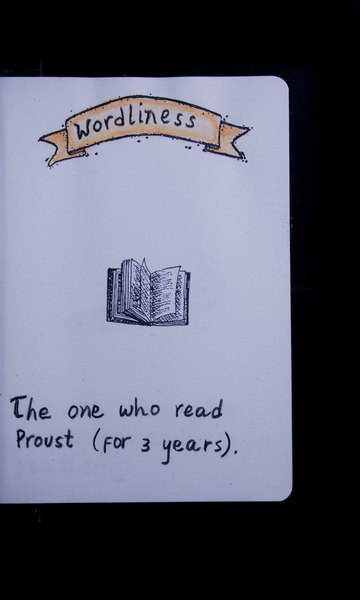 Wordliness
The one who read
Proust (for 3 years).